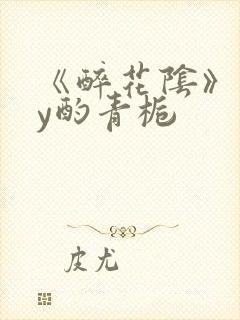 《醉花陰》
y酌青栀
皮尤